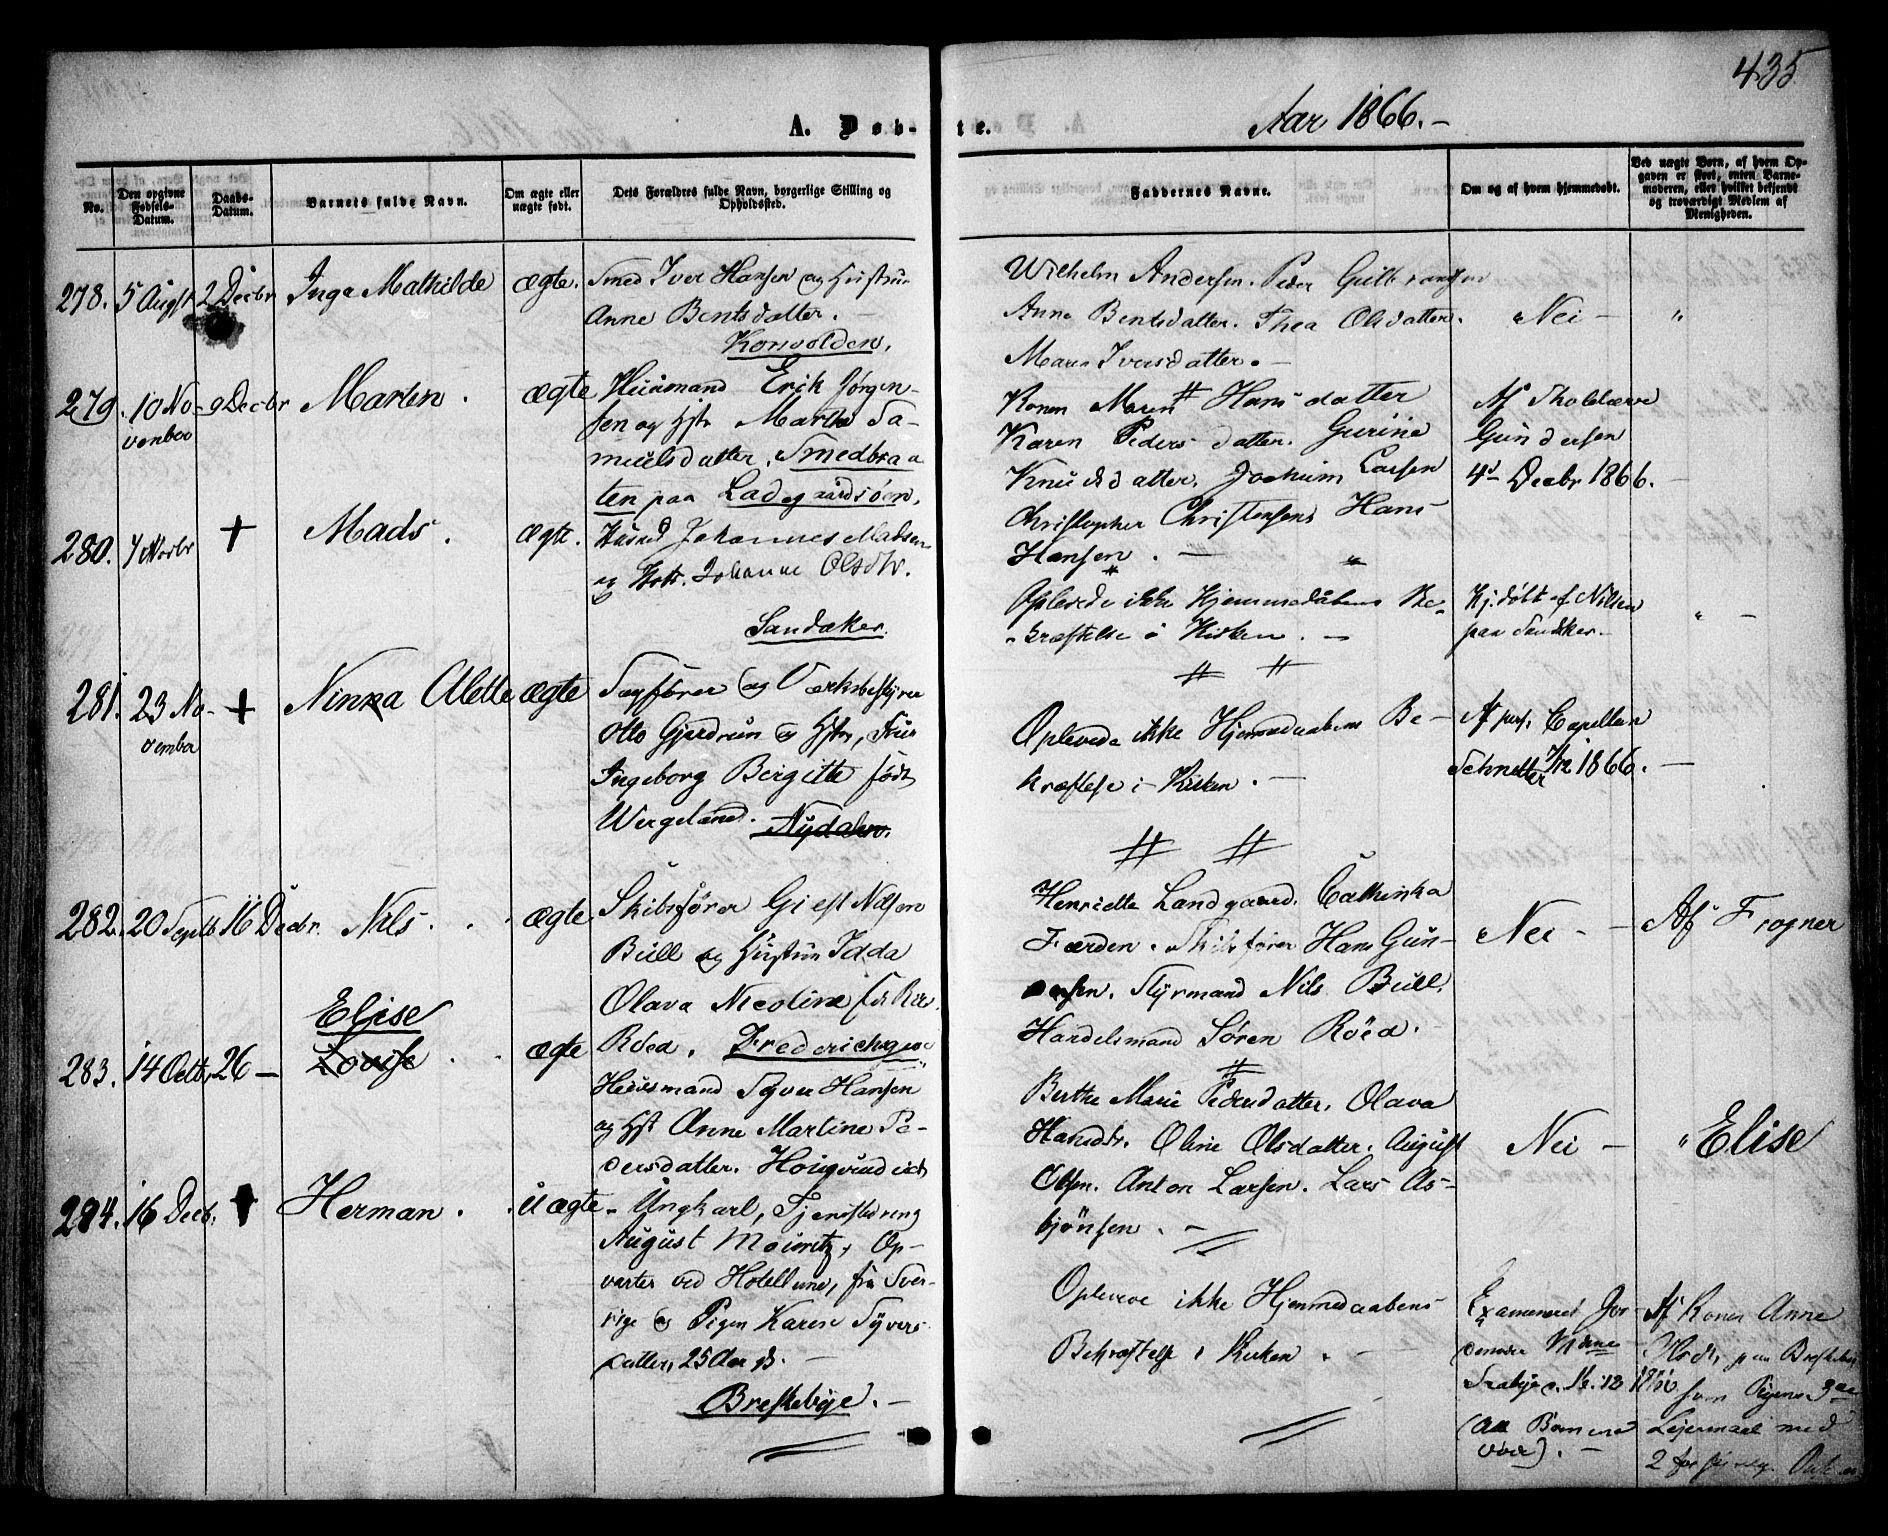 435
A. Døb-te.
Aar 1866.-
No.
Den opgivne Fødsels-Datum.
Daabs-Datum.
Barnets fulde Navn.
Om ægte eller uægte født.
Dets Forældres fulde Navn, borgerlige Stilling og Opholdssted.
Faddernes Navne.
Om og af hvem hjemmedøbt.
Ved uægte Børn, af hvem Opgaven er skeet, enten Barnemoderen, eller hvilket bekjendt og troværdigt Medlem af Menigheden.
278. 5 Augst 2 Decbr Inga Mathilde ægte.
Smed Iver Hansen og Hustru
Anne Bentsdatter. -
Konvolden.
Wilhelm Andersen. Peder Gulbrandsen
Anne Bentsdatter. Thea Olsdatter.
Maren Iversdatter. -
Nei - "
279. 10 No- 9 Decbr Marten. ægte
venber
Huusmand Erik Jørgen-
sen og Hstr Marthe Sa-
muelsdatter, Smedbraa
ten paa Ladegaardsøen.
Konen Maren Hansdatter
Karen Pedersdatter. Gurine
Knudsdatter. Jochum Larsen
Christopher Christensen Hans
Hansen. -
Af
Gundersen
4d Decbr 1866. -
280. 7 Novbr + Mads. ægte.
Husmd Johannes Madsen
og Hstr. Johanne Olsdtr.
Sandaker.
Oplevede ikke Hjemmedåbens Be-
kræftelse i Kirken. -
Hj. døbt af Nilsen
paa Sandker. -
" -
281. 23 No- + Ninna Alette ægte
vember
Sagfører og Værksbestyrer
Otto Gjerdrum og Hstr, Fru
Ingeborg Birgitte født
Wergeland. Nydalen.
Oplevede ikke Hjemmedaabens Be-
kræftelse i Kirken. -
Af Capellan
Schnitler 7/12 1866. -
282. 20 Septb 16 Decbr. Nils. ægte
Skibsfører Giest Nilsen
Bull og Hustru Idda
Olava Nicoline
Røed. Frederichsgave
Henriette Landgaard. Cathinka
Færden. Skibsfører Hans Gun-
Styrmand Nils Bull.
Handelsmand Søren Røed.
Nei - - Af Frogner
283. 14 Octb, 26 - Elise
Lovise . ægte
Huusmand Syver Hansen
og Hst Anne Martine Pe-
dersdatter.
Berthe Marie Pedersdatter. Olava
Hansdtr. Oline Olsdatter. August
Olsen. Anton Larsen. Lars As-
bjønsen. -
Nei - " Elise
284. 16 Decb. Herman. uægte
Ungkarl,
August Mouritz, Op-
varter ved Hotell fra Sver-
rige og Pigen Karen Syvers
datter, 25 Aar
Breskebye. -
Oplevede ikke Hjemmedaabens
Bekræftelse i Kirken. -
Examineret Jor-
demoder
(Aa Bommene
over). -
Af Konen Anne
paa Breskeby
som Pigens 3die
Leiermaal med
2